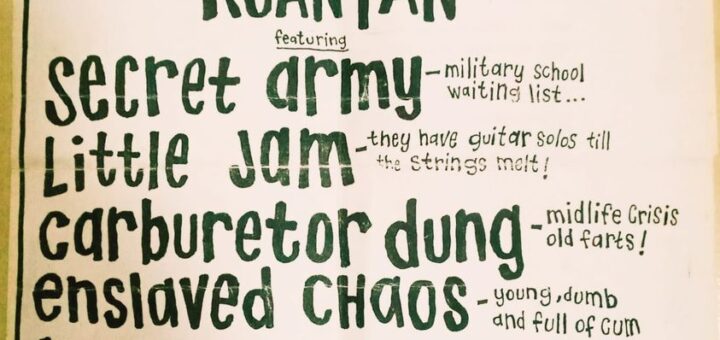 KUANTAN
featuring
secret army - military school
waiting list...
Little Jam - they have guitar solos till
the strings melt!
carburetor dung - midlife crisis
old farts!
enslaved CHaos - young, dumb
and full of cum